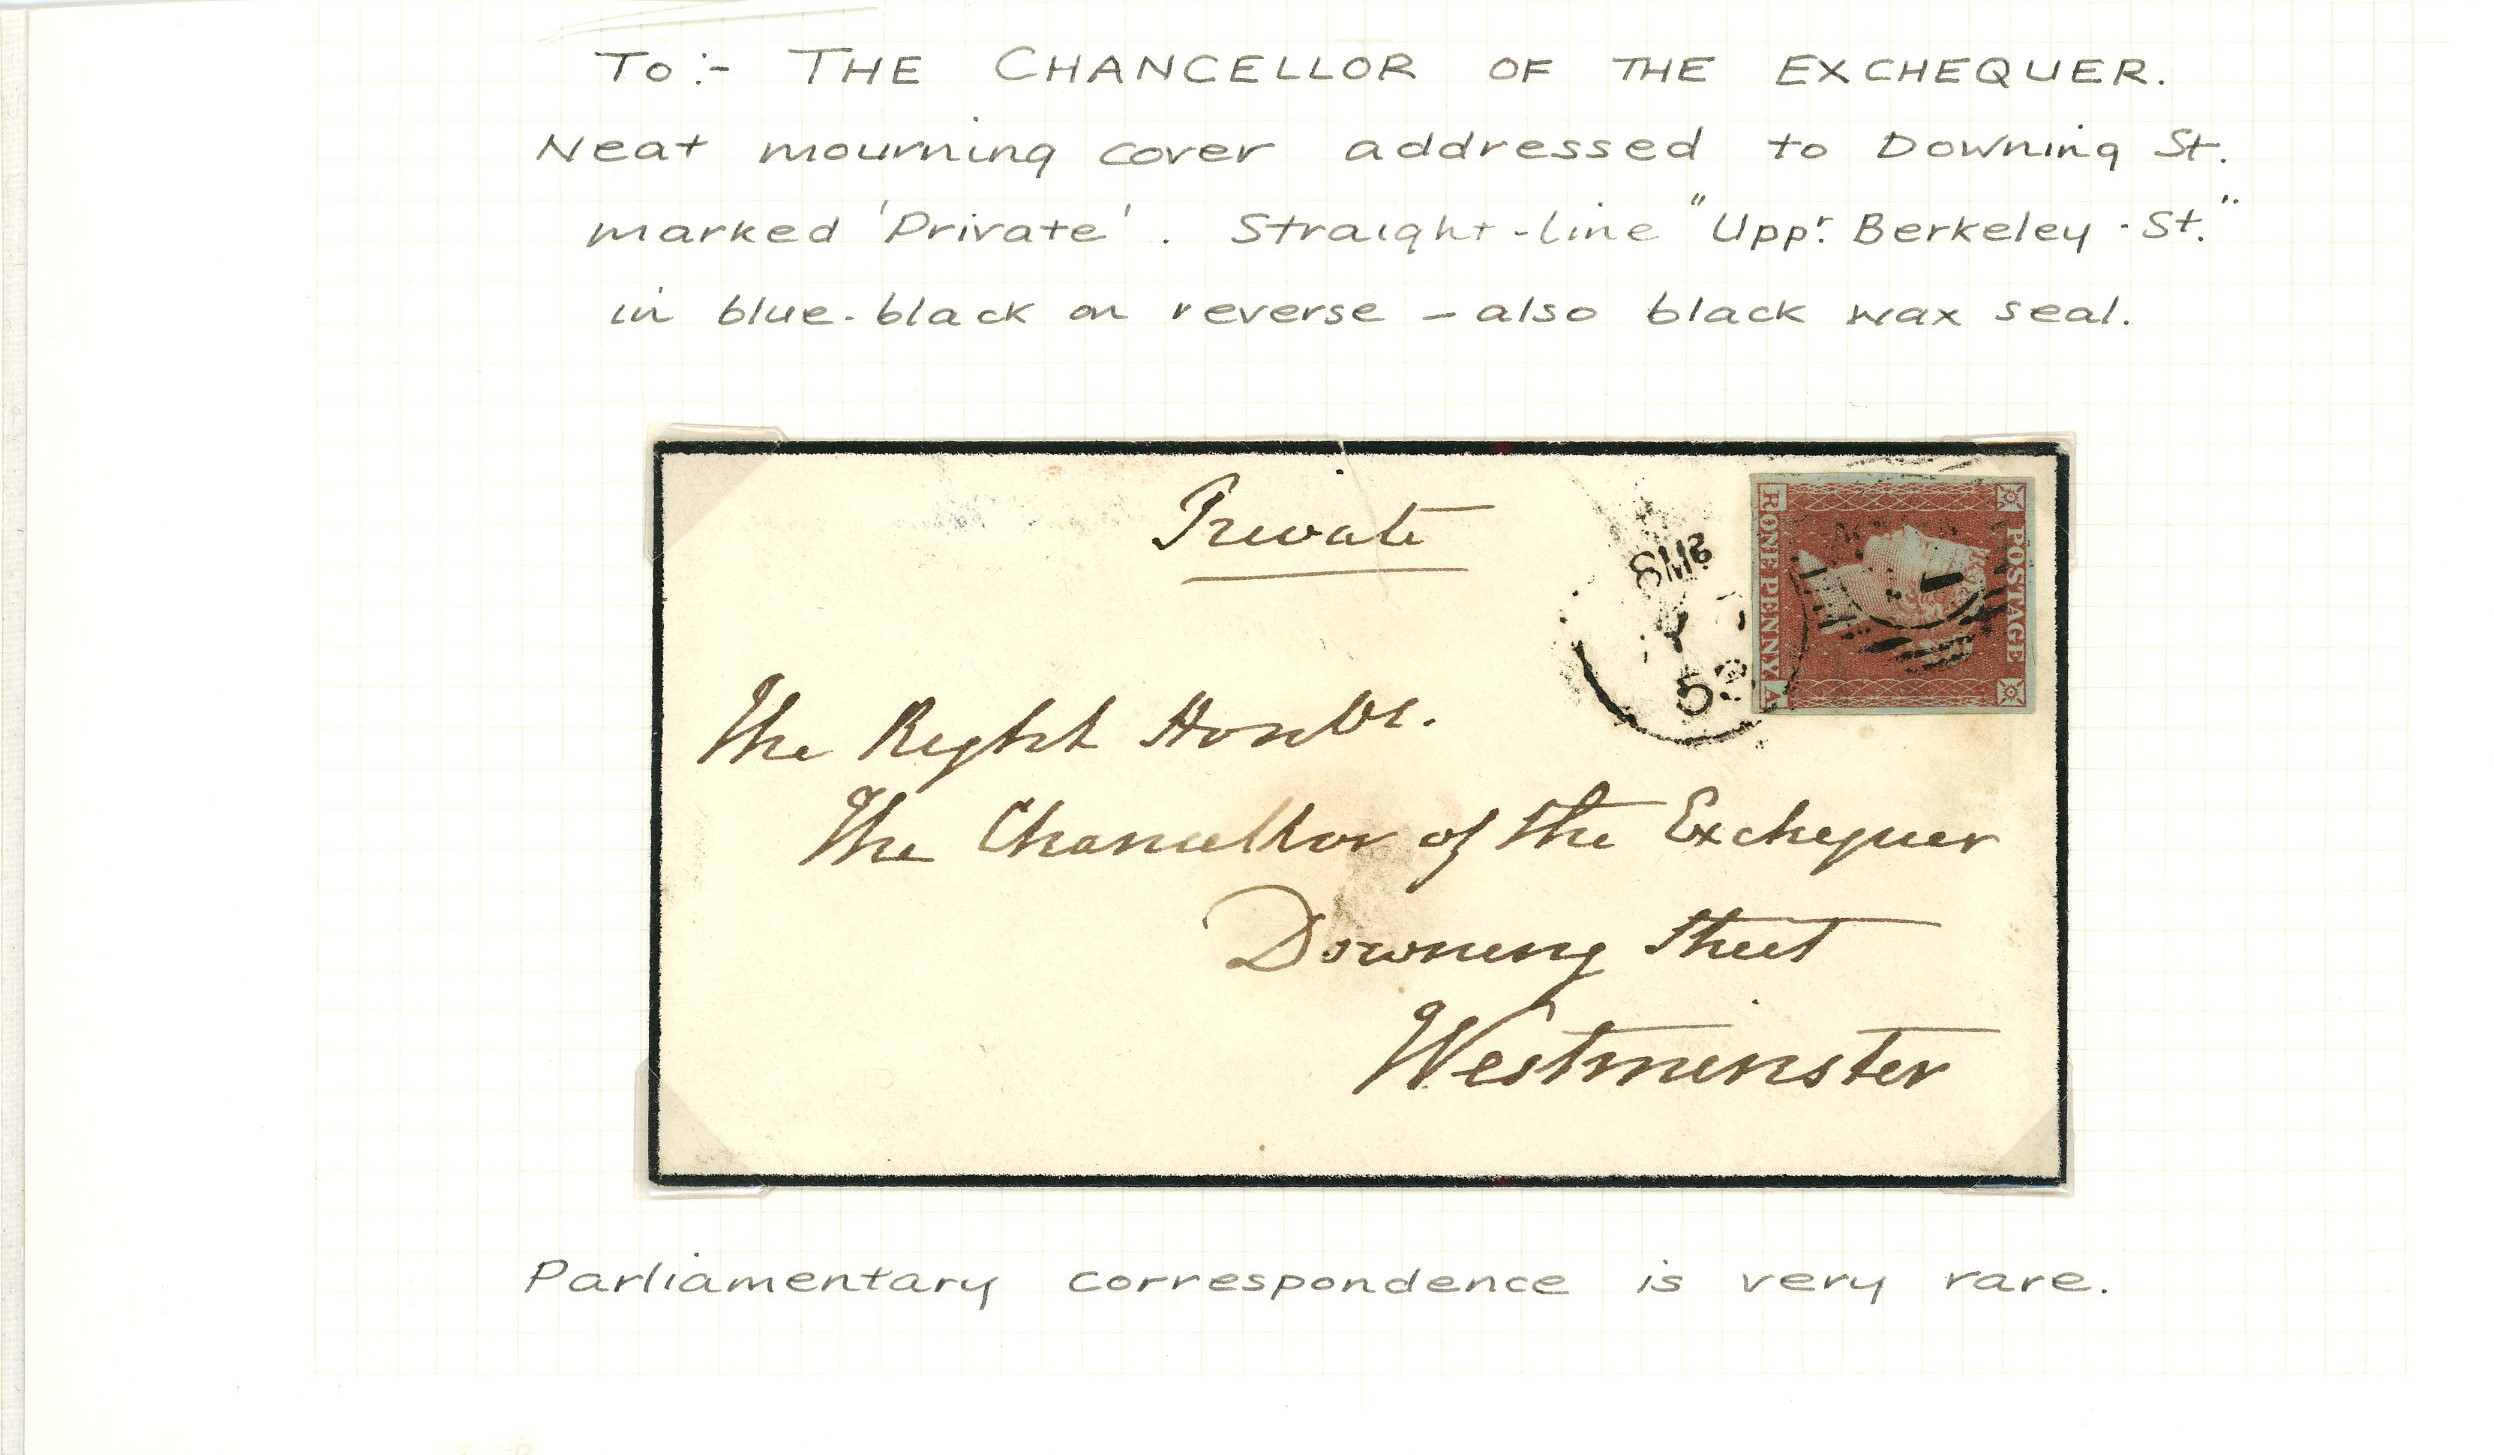 To:- THE CHANCELLOR OF THE EXCHEQUER.
Neat mourning cover addressed to Downing St.
marked 'Private'. Straight-line "Uppr. Berkeley-St."
in blue-black on reverse - also black wax seal.
Private
POSTAGE
ONE PENNY
R A
The Right Honble.
The Chancellor of the Exchequer
Downing Street
Westminster
Parliamentary correspondence is very rare.